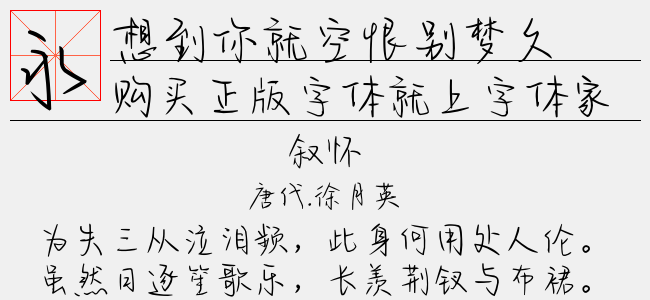 永
想到你就空恨别梦久
购买正版字体就上字体家
叙怀
唐代.徐月英
为失三从泣泪频，此身何用处人伦。
虽然日逐笙歌乐，长羡荆钗与布裙。